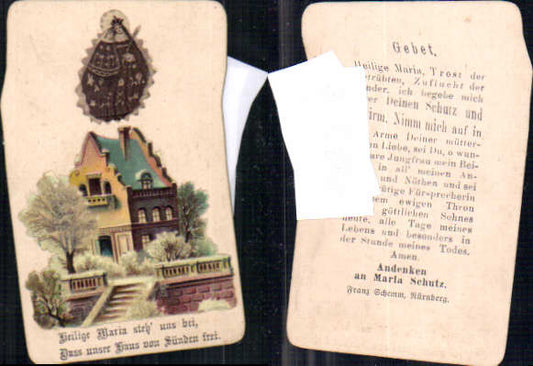 Heilige Maria steh' uns bei,
Dass unser Haus von Sünden frei.
Gebet.
Heilige Maria, Trost der
etrübten, Zuflucht der
ünder, ich begebe mich
er Deinen Schutz und
irm. Nimm mich auf in
Arme Deiner mütter-
n Liebe, sei Du, o wun-
are Jungfrau mein Bei-
in all' meinen An-
und Nöthen und sei
ütige Für-sprecherin
em ewigen Thron
göttlichen Sohnes
heute, alle Tage meines
Lebens und besonders in
der Stunde meines Todes.
Amen.
Andenken
an Maria Schutz.
Franz Schemm, Nürnberg.